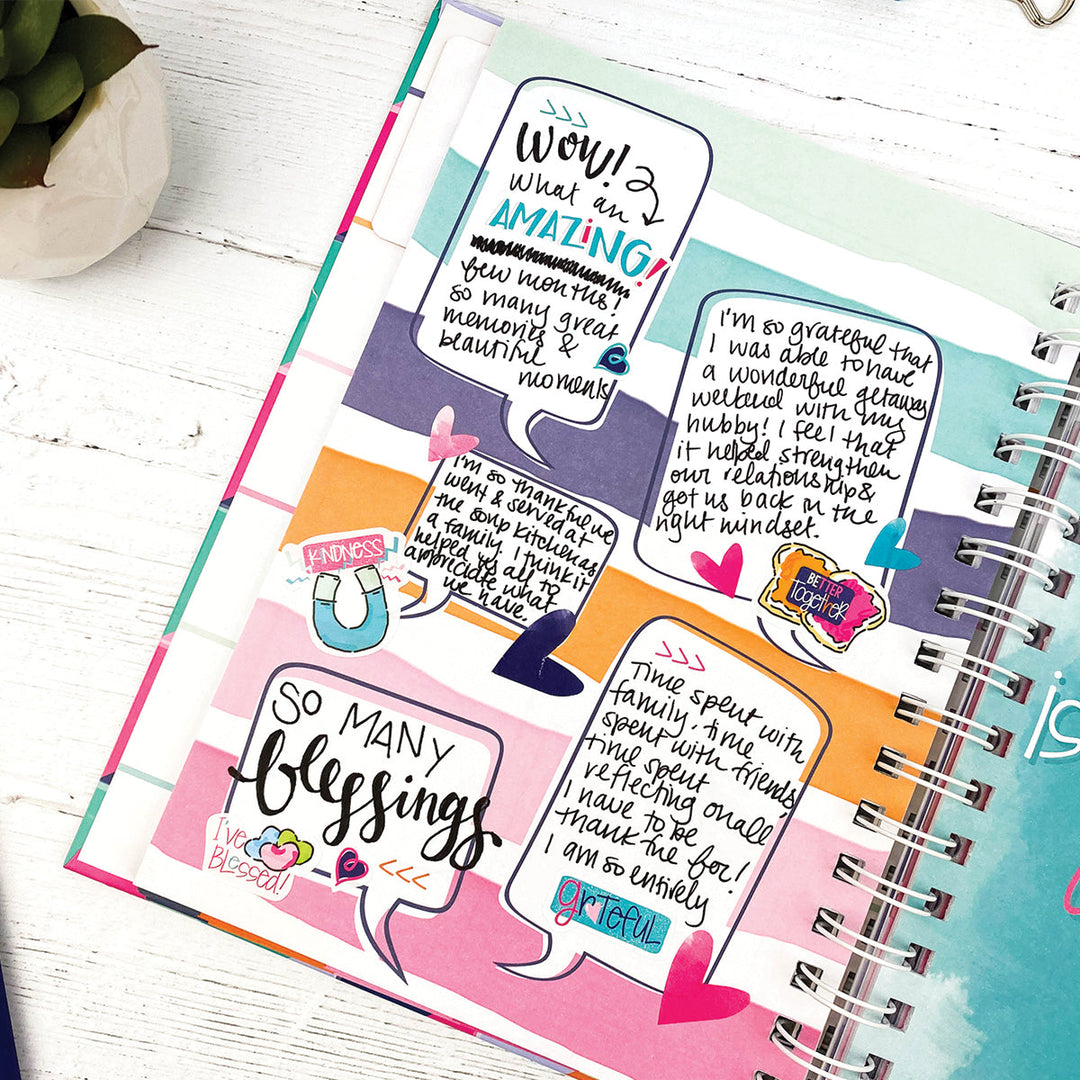 >>>
Wow!
What an
AMAZING!
few months!
so many great
memories &
beautiful
moments
I'm so grateful that
I was able to have
a wonderful getaway
weekend with my
hubby! I feel that
it helped strengthen
our relationship &
got us back in the
right mindset.
BETTER
TogetHER
I'm so thankful we
went & served at
the soup kitchen as
a family. I think it
helped us all to
appriciate what
we have.
KINDNESS
SO MANY
blessings
I've
BLessed!
<<<
>>>
Time spent with
family, time
spent with friends,
time spent
reflecting on all
I have to be
thankful for!
I am so entirely
grTefuL
is